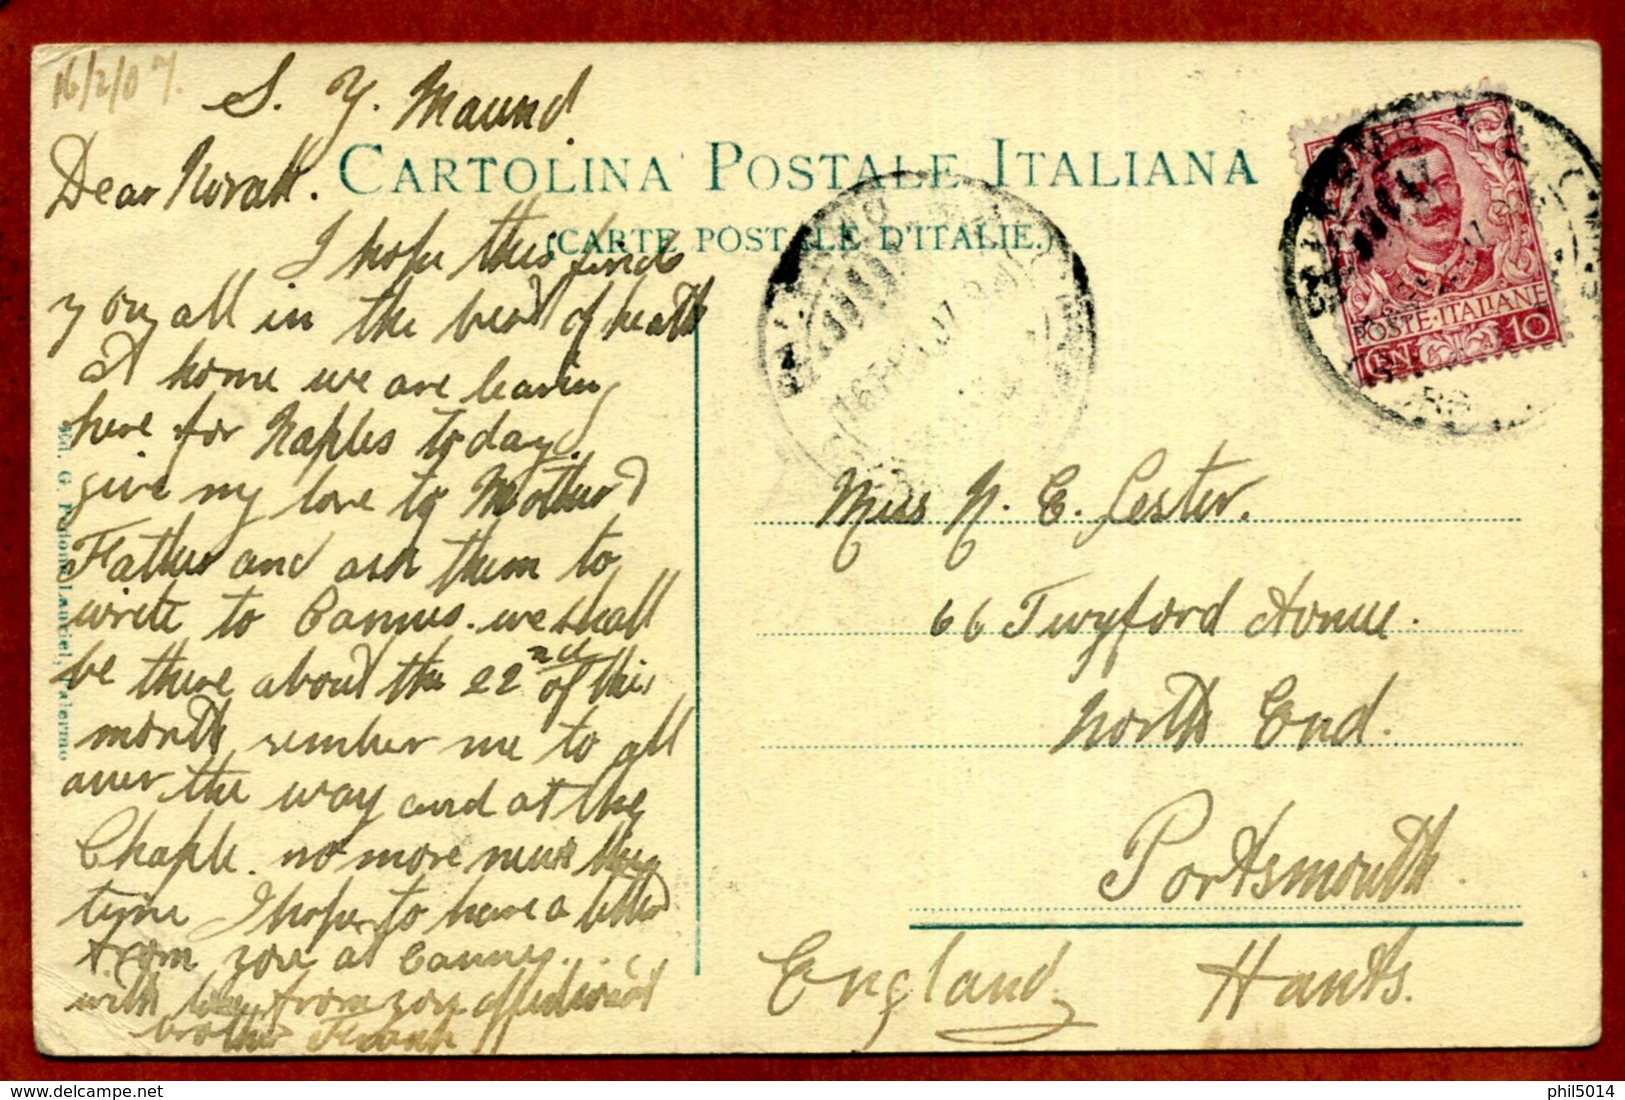 16/2/07.
S. Y. Maund
Dear Norah.
CARTOLINA POSTALE ITALIANA
(CARTE POSTALE D'ITALIE.)
I hope this finds
you all in the best of health
at home we are leaving
here for Naples today.
give my love to Mother
Father and ask them to
write to Cannes. we shall
be there about the 22nd of this
month, rember me to all
over the way and at the
Chaple. no more news this
time I hope to have a letter
from you at Cannes...
with love from your affectionat
brother Frank
Ed. G. Pedone Lauriel, Palermo
POSTE · ITALIANE
CEN. 10
Miss N. E. Lester.
66 Twyford Avnue.
North End.
Portsmouth.
England Hants.
delcampe.net
phil5014